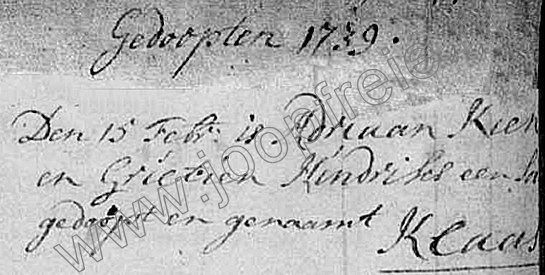 Gedoopten 1739.
Den 15 Febr. is Adriaan
en Grietien Hindriks een
gedoopt en genaamt Klaas
www.joopfreie